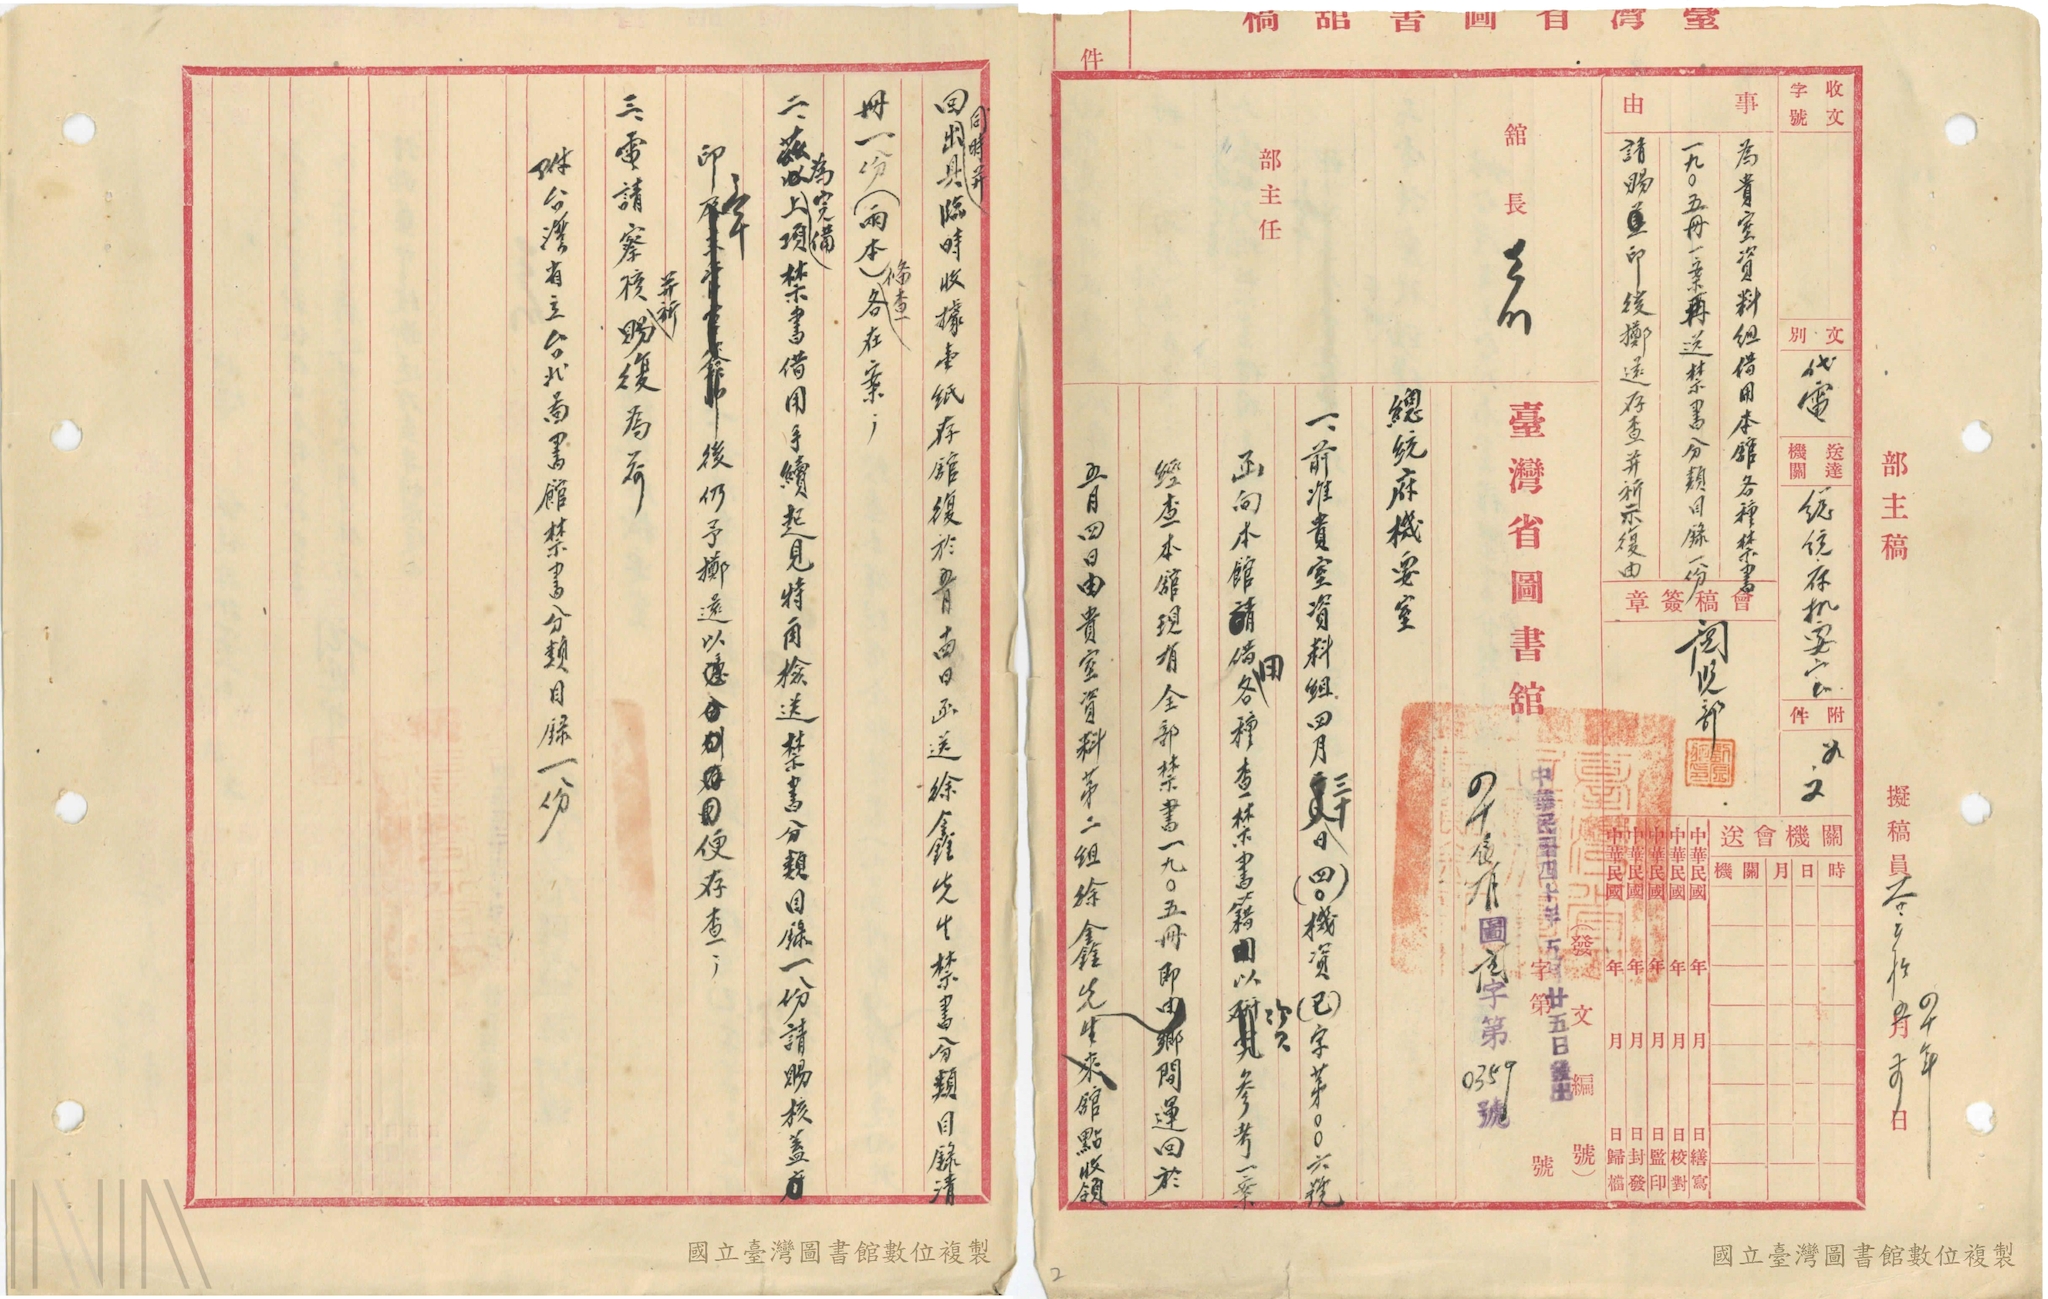 臺灣省圖書館稿
件
收文
字號
文別
代電
送達
機關
總統府機要室
附件
如文
事由
為貴室資料組借用本館各種禁書
一九〇五冊一案再送禁書分類目錄一份
請賜蓋印後擲還存查并祈示復由
會稿簽章
閱覽部
部主稿
擬稿員
四十年
月
日
關機會送
時
日
月
關
機
中華民國 年 月 日繕寫
中華民國 年 月 日校對
中華民國 年 月 日監印
中華民國 年 月 日封發
中華民國 年 月 日歸檔
館長
部主任
發文編號)
中華民國四十年五月廿五日發出
臺灣省圖書館
字第
號
四十
圖
字第0359號
總統府機要室
一、前准貴室資料組四月三十日(四〇)機資(已)字第〇〇六號
函向本館請借用各種查禁書籍以資參考一案
經查本館現有全部禁書一九〇五冊即由鄉間運回於
五月四日由貴室資料第二組徐鑫先生來館點收領
回同時并出具臨時收據壹紙存館復於五月
日函送徐鑫先生禁書分類目錄清
冊一份(兩本)備查各在案;
二、茲為完備上項禁書借用手續起見特再檢送禁書分類目錄一份請賜核蓋
印
後仍予擲還以
便存查;
三、電請察核并祈賜復為荷
附台灣省立台北圖書館禁書分類目錄一份
2
國立臺灣圖書館數位複製
國立臺灣圖書館數位複製